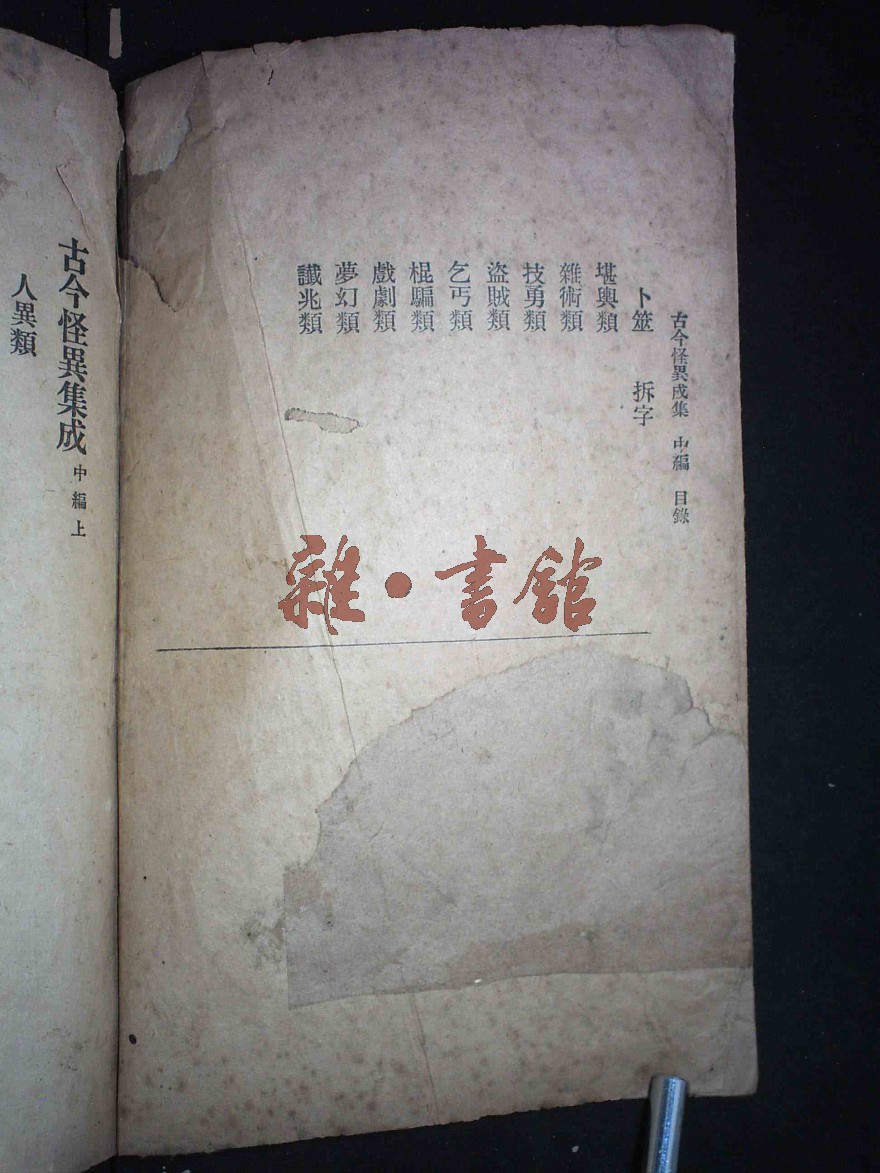 古今怪異成集　中編　目錄
卜筮　拆字
堪輿類
雜術類
技勇類
盜賊類
乞丐類
棍騙類
戲劇類
夢幻類
讖兆類
古今怪異集成　中編上
人異類
雜·書館